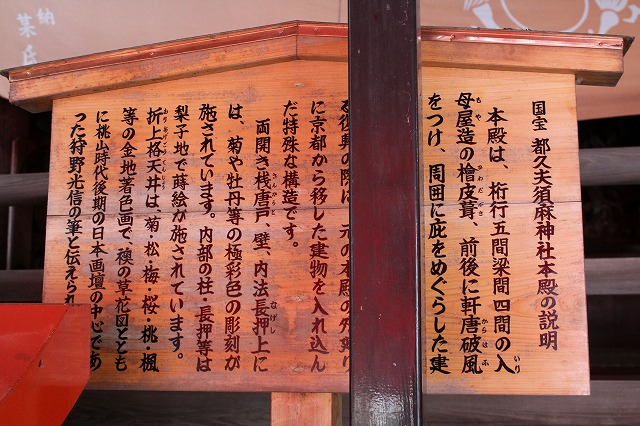 国宝 都久夫須麻神社本殿の説明
本殿は、桁行五間梁間四間の入
いり
母屋造の檜皮葺、前後に軒唐破風
もや からはふ
をつけ、周囲に庇をめぐらした建
復興の際に 元の本殿の外
に京都から移した建物を入れ込ん
だ特殊な構造です。
両開き桟唐戸、壁、内法長押上に
さんからと むげし
は、菊や牡丹等の極彩色の彫刻が
施されています。内部の柱・長押等は
梨子地で蒔絵が施されています。
折上格天井は、菊・松・梅・桜・桃・楓
等の金地着色画で、襖の草花図ととも
に桃山時代後期の日本画壇の中心であ
った狩野光信の筆と伝えられ
納